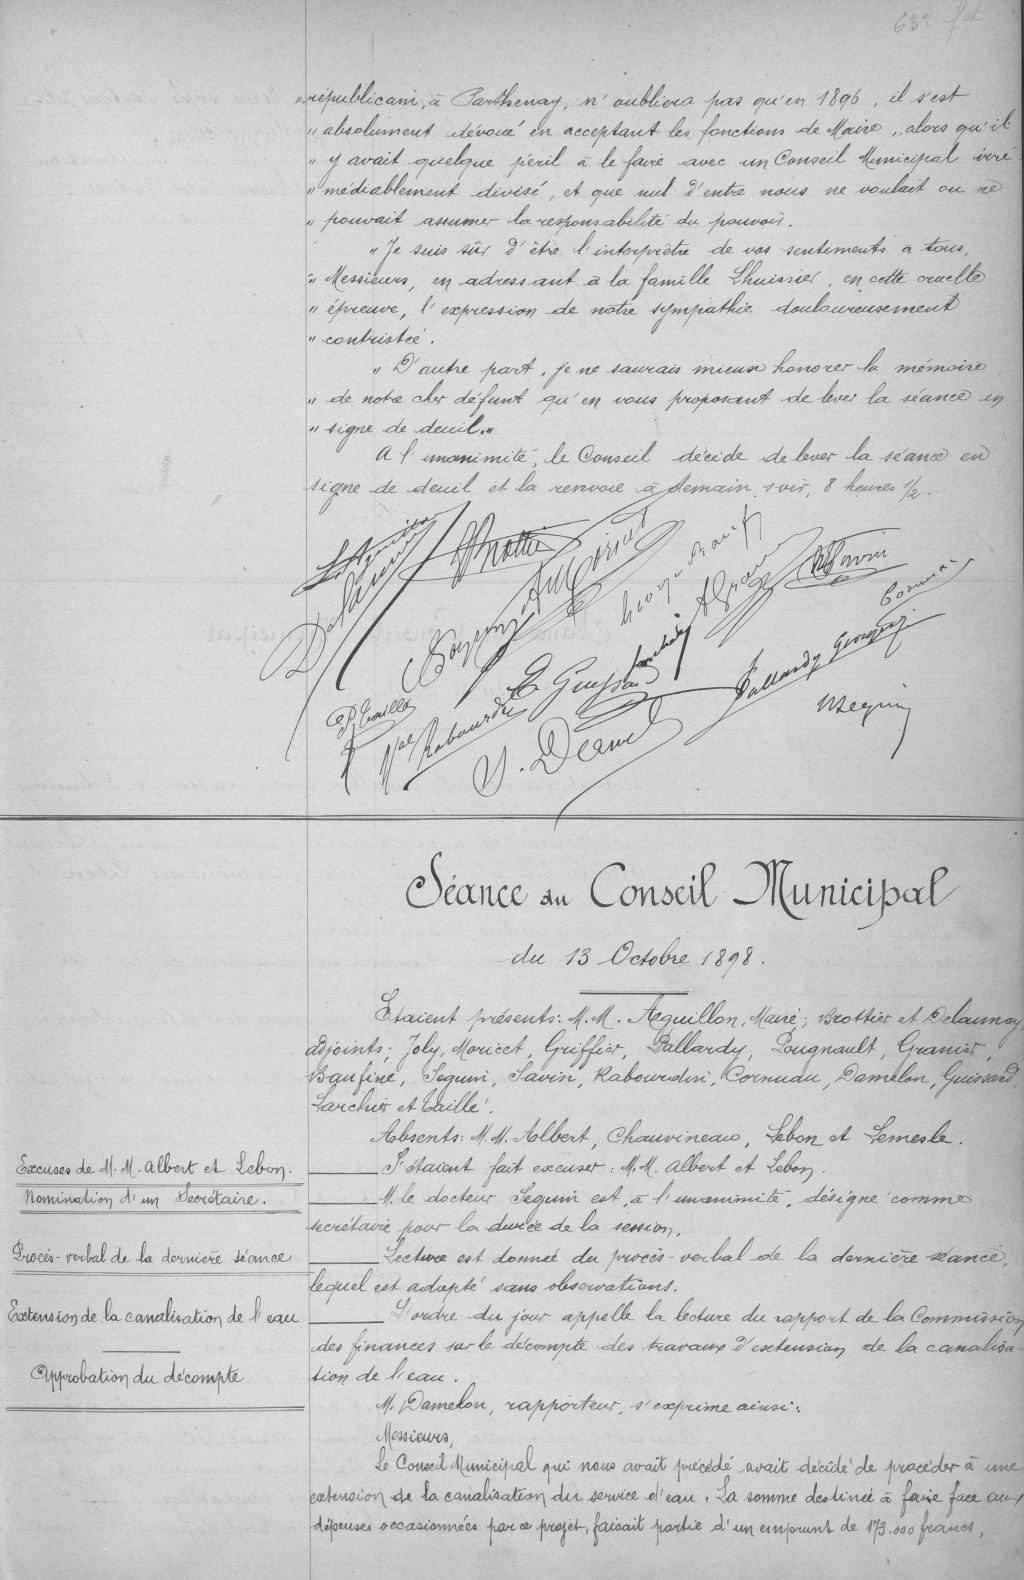 63e f et
" républicain, à Parthenay, n'oubliera pas qu'en 1896, il s'est
" absolument dévoué en acceptant les fonctions de Maire, alors qu'il
" y avait quelque péril à le faire avec un Conseil Municipal irré
" médiablement divisé, et que nul d'entre nous ne voulait ou ne
" pouvait assumer la responsabilité du pouvoir.
" Je suis sûr d'être l'interprète de vos sentiments à tous,
" Messieurs, en adressant à la famille Lhuissier, en cette cruelle
" épreuve, l'expression de notre sympathie douloureusement
" contristée.
" D'autre part, je ne saurais mieux honorer la mémoire
" de notre cher défunt qu'en vous proposant de lever la séance en
" signe de deuil. "
A l'unanimité, le Conseil décide de lever la séance en
signe de deuil et la renvoie à demain soir, 8 heures 1/2.
L. Aguillon
Delaunay
Brottier
A. Moricet
A. Granier
Savin
Cornuau
E. Guissard
Larchier
Pallardy Georges
P. Taillé
Rabourdin
Seguin
Séance du Conseil Municipal
du 13 Octobre 1898.
Etaient présents: M.M. Aguillon, Maire; Brottier et Delaunay
adjoints; Joly, Moricet, Griffier, Pallardy, Pougnault, Granier,
Baufine, Seguin, Savin, Rabourdin, Cornuau, Damelon, Guissard,
Larchier et Taillé.
Absents: M.M. Albert, Chauvineau, Lebon et Lemesle.
Excuses de M.M. Albert et Lebon.
S'étaient fait excuser: M.M. Albert et Lebon.
Nomination d'un Secrétaire.
M. le docteur Seguin est, à l'unanimité, désigné comme
secrétaire pour la durée de la session.
Procès-verbal de la dernière séance
Lecture est donnée du procès-verbal de la dernière séance,
lequel est adopté sans observations.
Extension de la canalisation de l'eau
Approbation du décompte
L'ordre du jour appelle la lecture du rapport de la Commission
des finances sur le décompte des travaux d'extension de la canalisa-
tion de l'eau.
M. Damelon, rapporteur, s'exprime ainsi:
Messieurs,
Le Conseil Municipal qui nous avait précédé avait décidé de procéder à une
extension de la canalisation du service d'eau. La somme destinée à faire face aux
dépenses occasionnées par ce projet, faisait partie d'un emprunt de 173.000 francs,